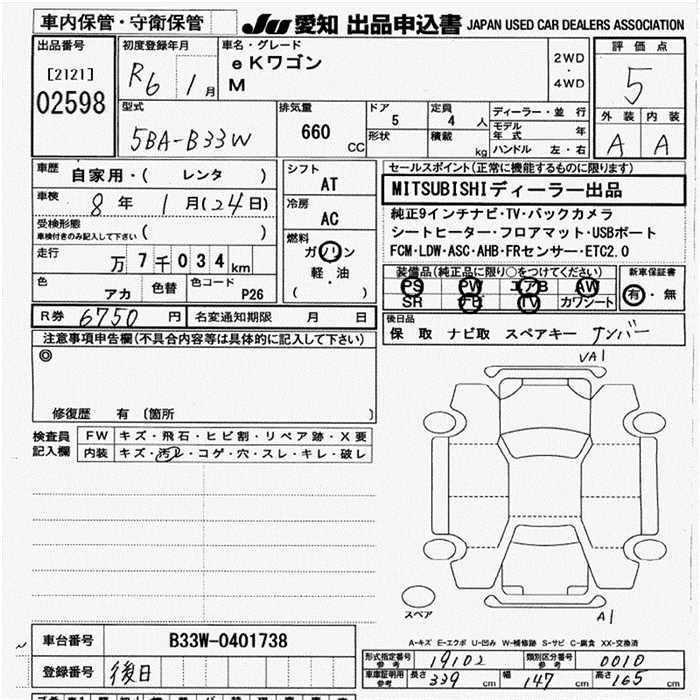 車内保管・守衛保管
JU 愛知 出品申込書 JAPAN USED CAR DEALERS ASSOCIATION
出品番号
[2121]
02598
初度登録年月
R6 1月
車名・グレード
eKワゴン
M
2WD
・
4WD
評価点
5
外装 内装
A A
型式
5BA-B33W
排気量
660 CC
ドア
5
形状
定員
4 人
積載
kg
ディーラー・並行
モデル年式 年
ハンドル 左・右
車歴
自家用・( レンタ )
車検
8年 1月(24日)
受検形態
車検付きのみ記入して下さい ( )
走行
万7千034km
色
アカ
色替
色コード
P26
シフト
AT
冷房
AC
燃料
ガソリン
軽・油
( )
セールスポイント(正常に機能するものに限ります)
MITSUBISHIディーラー出品
純正9インチナビ・TV・バックカメラ
シートヒーター・フロアマット・USBポート
FCM・LDW・ASC・AHB・FRセンサー・ETC2.0
装備品(純正品に限り○をつけてください)
PS PW エアB AW
SR TV カワシート
新車保証書
有・無
R券 6750円
名変通知期限 月 日
後日品
保 取 ナビ取 スペアキー ナンバー
注意事項申告欄(不具合内容等は具体的に記入して下さい)
◎
修復歴 有 〔箇所 〕
検査員
記入欄
FW キズ・飛石・ヒビ割・リペア跡・X要
内装 キズ・汚レ・コゲ・穴・スレ・キレ・破レ
VA1
スペア
A1
A-キズ E-エクボ U-凹み W-補修跡 S-サビ C-腐食 XX-交換済
車台番号 B33W-0401738
登録番号 後日
形式指定番号
参考
19102
類別区分番号
参考
0010
車庫証明用
参考
長さ 339 cm
幅 147 cm
高さ 165 cm